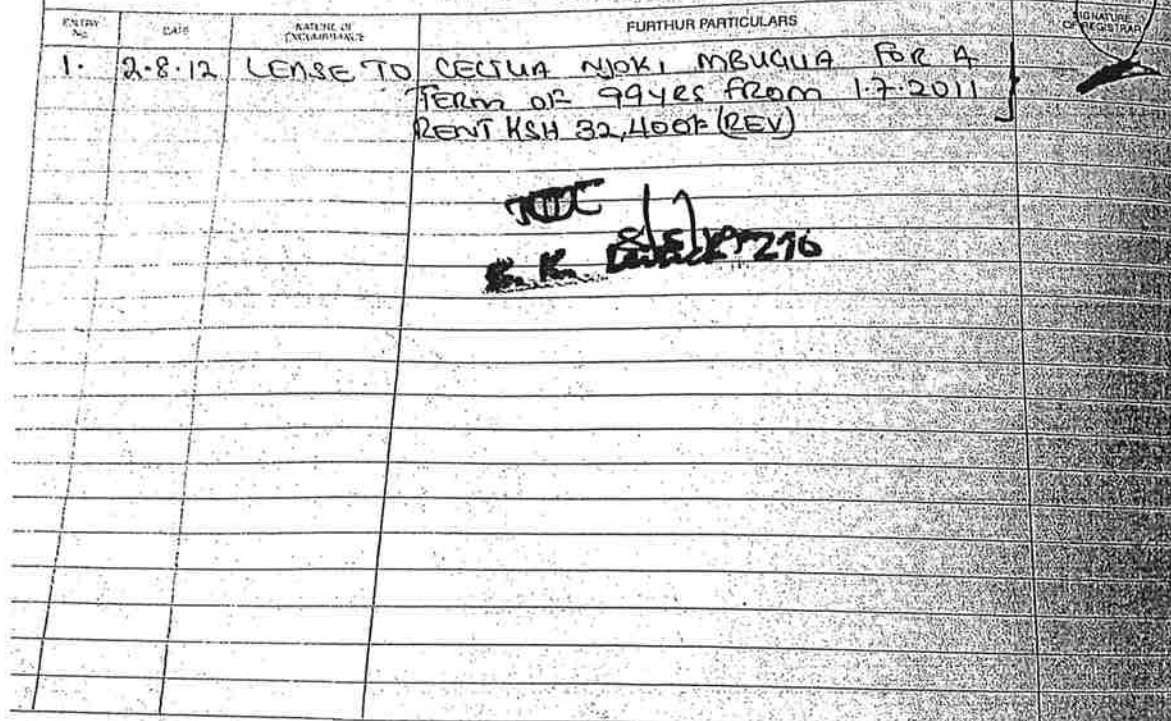 ENTRY No. DATE NATURE OF ENCUMBRANCE FURTHUR PARTICULARS SIGNATURE OF REGISTRAR
1. 2.8.12 LEASE TO CECILIA NJOKI MBUGUA FOR A
TERM OF 99 YRS FROM 1.7.2011
RENT KSH 32,400/= (REV)
216